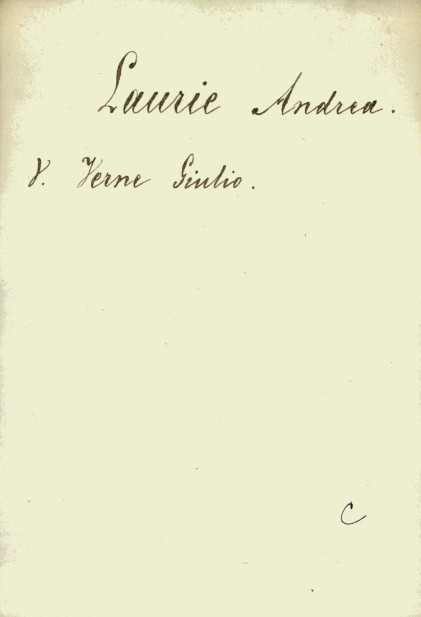 Laurie Andrea.
V. Verne Giulio.
C